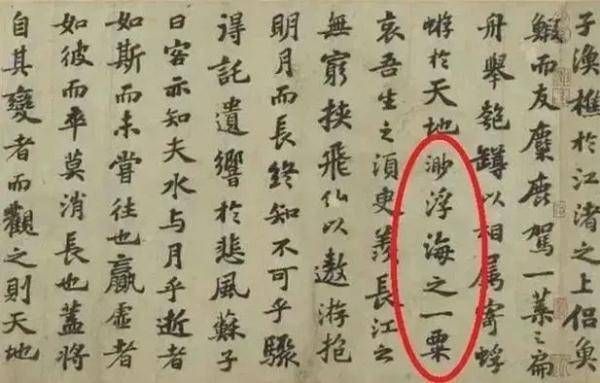 子漁樵於江渚之上侶魚
鰕而友麋鹿駕一葉之扁
舟舉匏罇以相屬寄蜉
蝣於天地渺浮海之一粟
哀吾生之須臾羨長江之
無窮挾飛仙以遨游抱
明月而長終知不可乎驟
得託遺響於悲風蘇子
曰客亦知夫水与月乎逝者
如斯而未嘗往也贏虛者
如彼而卒莫消長也蓋將
自其變者而觀之則天地